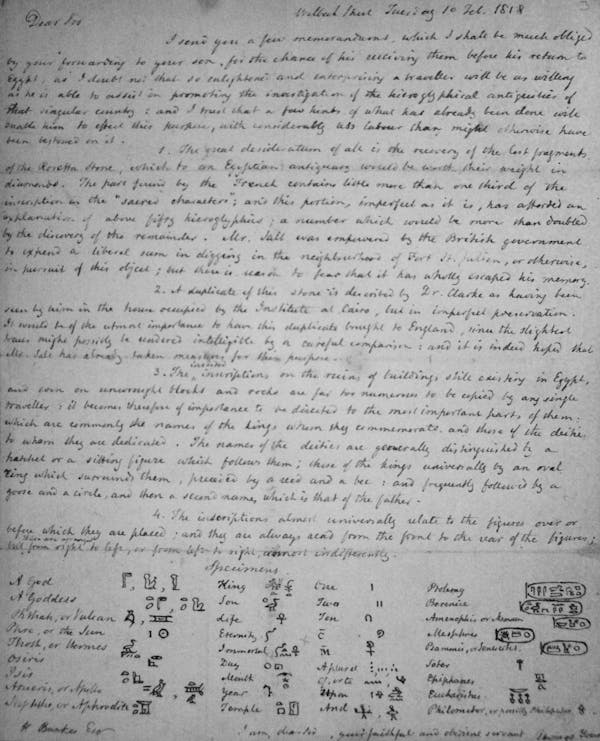 Welbeck Street Tuesday 10 Feb. 1818
Dear Sir
I send you a few memorandums, which I shall be much obliged
by your forwarding to your son, for the chance of his receiving them before his return to
Egypt, as I doubt not that so enlightened and enterprising a traveller will be as willing
as he is able to assist in promoting the investigation of the hieroglyphical antiquities of
that singular country: and I trust that a few hints of what has already been done will
enable him to effect this purpose, with considerably less labour than might otherwise have
been bestowed on it.
1. The great desideratum of all is the recovery of the lost fragments
of the Rosetta Stone, which to an Egyptian antiquary would be worth their weight in
diamonds. The part found by the French contains little more than one third of the
inscription in the "sacred characters"; and this portion, imperfect as it is, has afforded an
explanation of above fifty hieroglyphics; a number which would be more than doubled
by the discovery of the remainder. Mr. Salt was empowered by the British government
to expend a liberal sum in digging in the neighbourhood of Fort St. Julien, or otherwise,
in pursuit of this object; but there is reason to fear that it has wholly escaped his memory.
2. A duplicate of this stone is described by Dr. Clarke as having been
seen by him in the house occupied by the Institute at Cairo, but in imperfect preservation.
It would be of the utmost importance to have this duplicate brought to England, since the slightest
traces might possibly be rendered intelligible by a careful comparison: and it is indeed hoped that
Mr. Salt has already taken measures for this purpose.
3. The inscriptions on the ruins of buildings still existing in Egypt,
and even on unwrought blocks and rocks are far too numerous to be copied by any single
traveller; it becomes therefore of importance to be directed to the most important parts of them;
which are commonly the names of the kings whom they commemorate and those of the deities,
to whom they are dedicated. The names of the deities are generally distinguished by a
hatchet or a sitting figure which follows them; those of the kings universally by an oval
ring which surrounds them, preceded by a reed and a bee: and frequently followed by a
goose and a circle, and then a second name, which is that of the father.
4. The inscriptions almost universally relate to the figures over or
before which they are placed; and they are always read from the front to the rear of the figures;
but from right to left, or from left to right, almost indifferently.
Specimens
A God King One I Ptolemy
A Goddess Son Two II Berenice
Phthah, or Vulcan Life Ten Amenophis or Memnon
Phre, or the Sun Eternity C Mesphres
Thoth, or Hermes Immortal M
Osiris Day A plural Soter
Isis Month Of, or to Epiphanes
Arueris, or Apollo Year Upon Eucharistus
Nephthe, or Aphrodite Temple And Philometor, or possibly Philopator
W Bankes Esq I am, dear Sir, your faithful and obedient servant Thomas Young